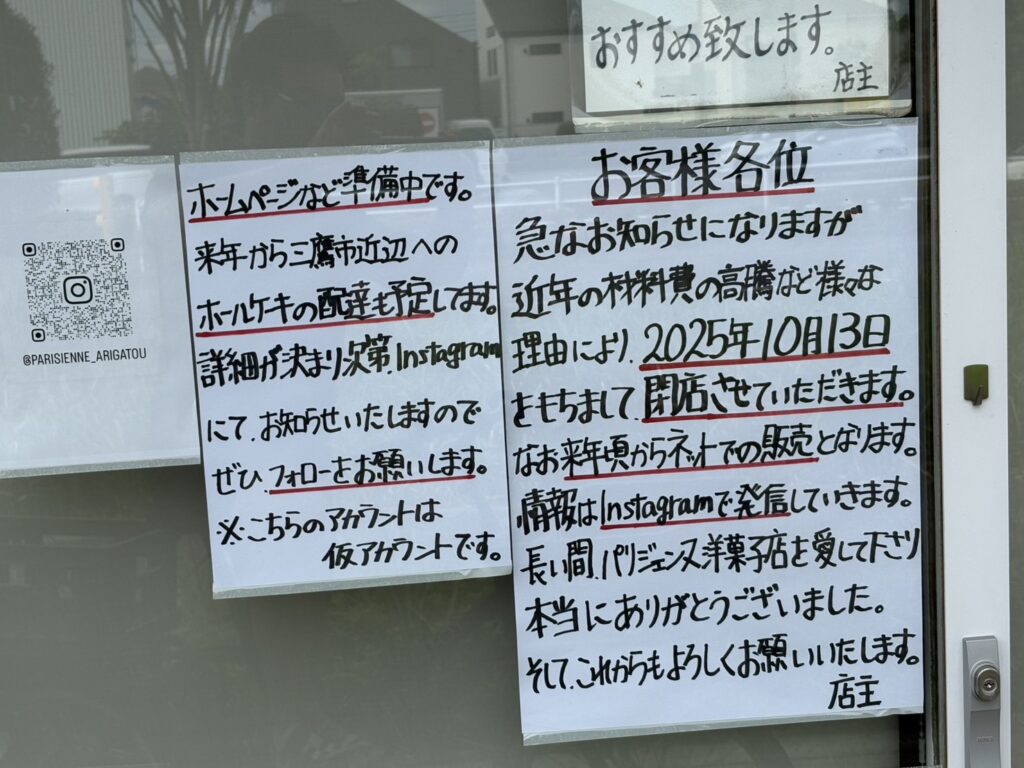 おすすめ致します。
店主
お客様各位
急なお知らせになりますが
近年の材料費の高騰など様々な
理由により、2025年10月13日
をもちまして、閉店させていただきます。
なお来年頃からネットでの販売となります。
情報はInstagramで発信していきます。
長い間、パリジェンヌ洋菓子店を愛して下さり
本当にありがとうございました。
そして、これからもよろしくお願いいたします。
店主
ホームページなど準備中です。
来年から三鷹市近辺への
ホールケキの配達も予定してます。
詳細が決まり次第、Instagram
にて、お知らせいたしますので
ぜひ、フォローをお願いします。
※こちらのアカウントは
仮アカウントです。
@PARISIENNE_ARIGATOU